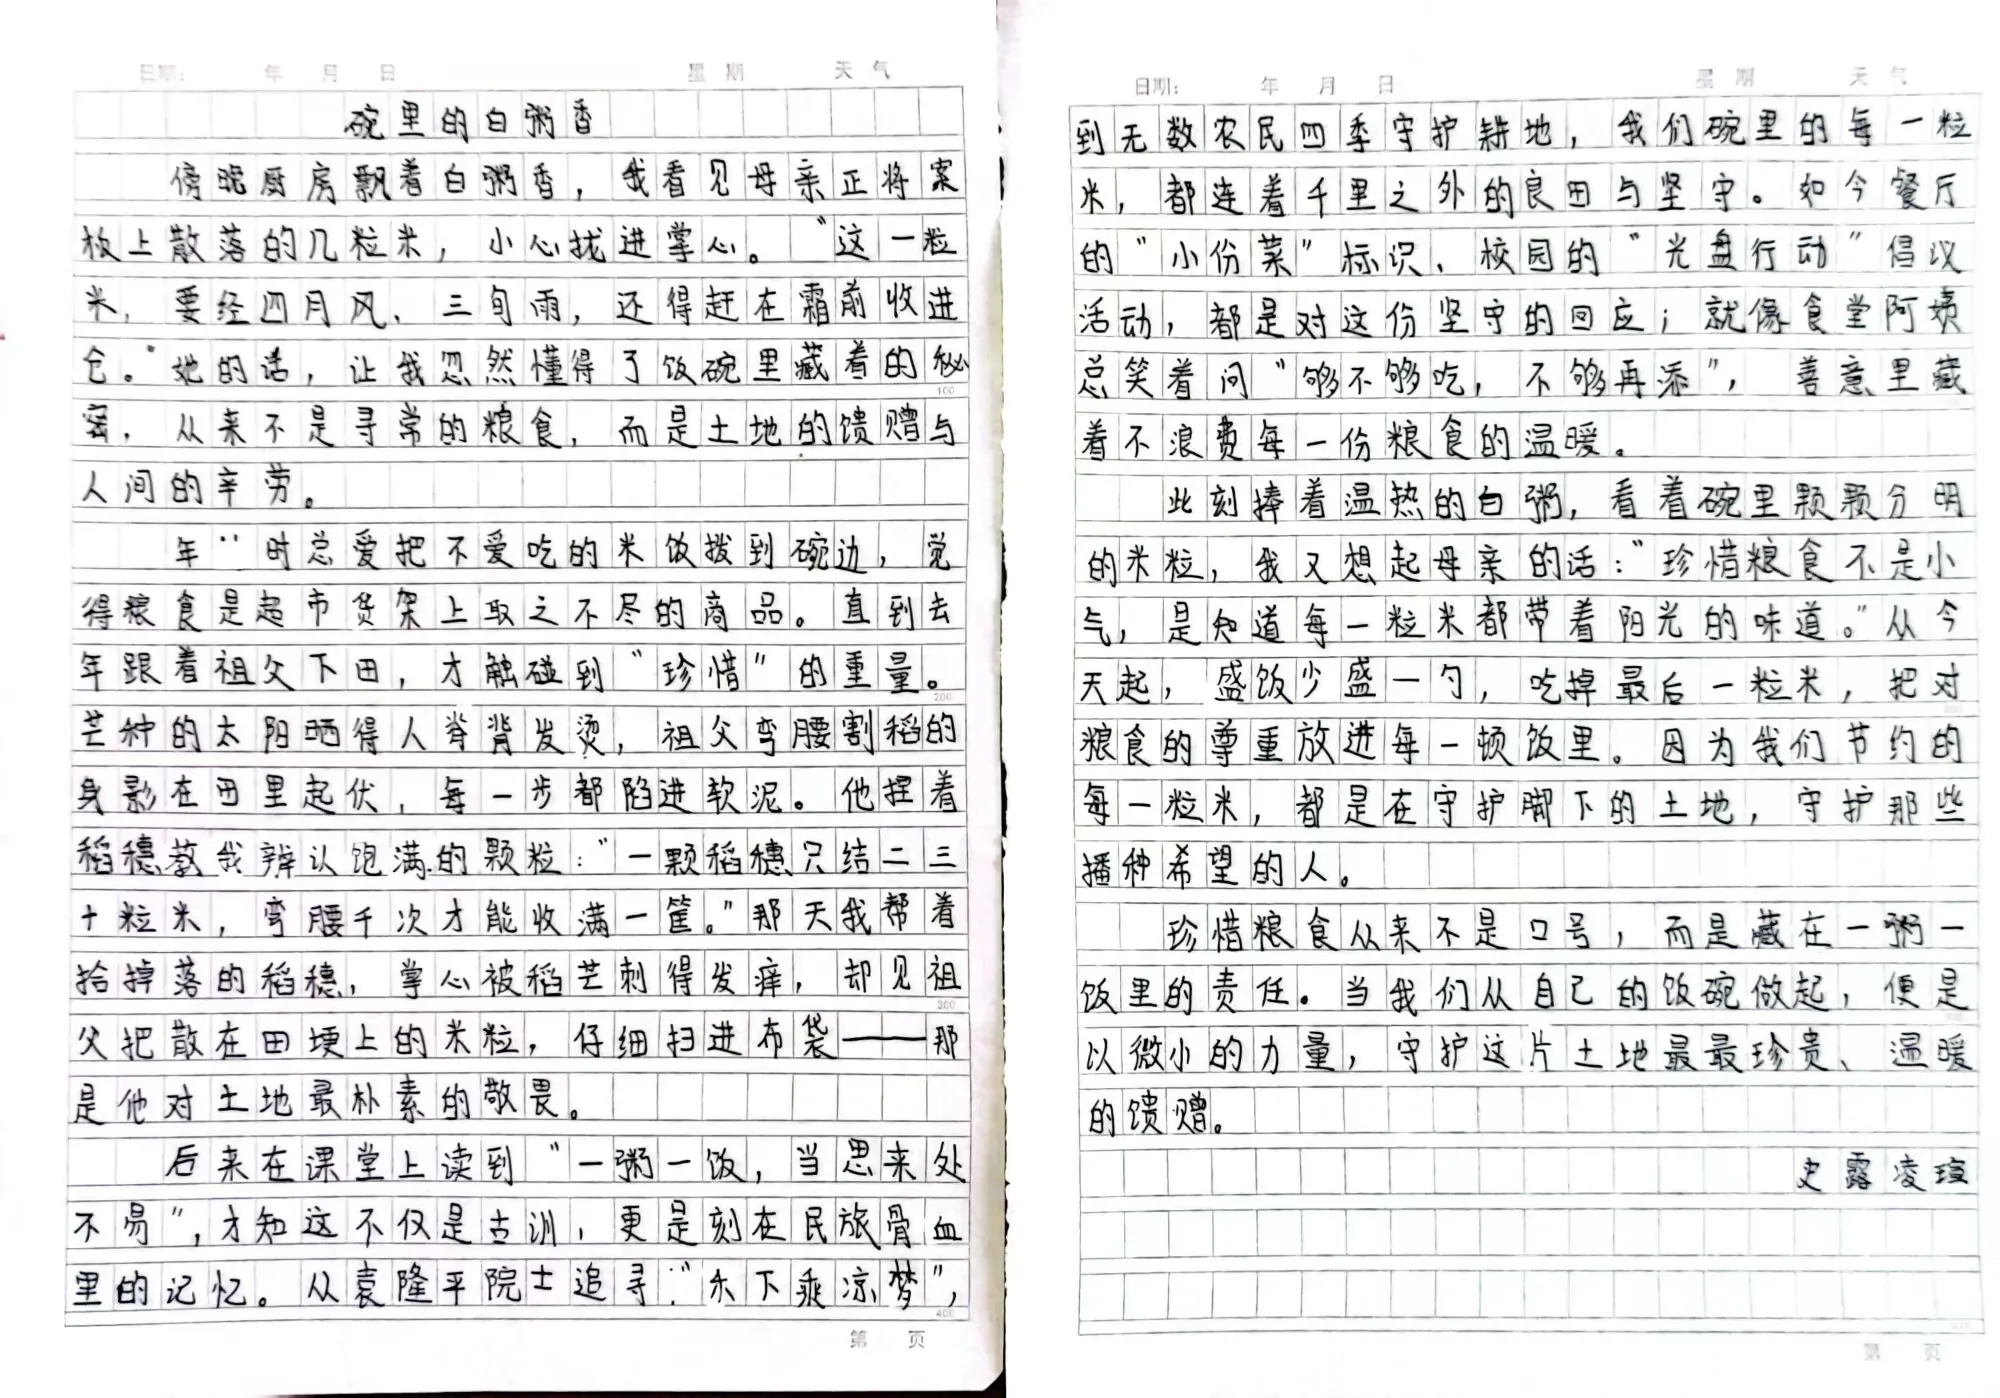 日期： 年 月 日 星 期 天 气
碗里的白粥香
傍晚厨房飘着白粥香，我看见母亲正将案
板上散落的几粒米，小心找进掌心。“这一粒
米，要经四月风、三旬雨，还得赶在霜前收进
仓。”她的话，让我忽然懂得了饭碗里藏着的秘
100
密，从来不是寻常的粮食，而是土地的馈赠与
人间的辛劳。
年 时总爱把不爱吃的米饭拨到碗边，觉
得粮食是超市货架上取之不尽的商品。直到去
年跟着祖父下田，才触碰到“珍惜”的重量。
200
芒种的太阳晒得人脊背发烫，祖父弯腰割稻的
身影在田里起伏，每一步都陷进软泥。他捏着
稻穗教我辨认饱满的颗粒：“一颗稻穗只结二三
十粒米，弯腰千次才能收满一筐。”那天我帮着
拾掉落的稻穗，掌心被稻芒刺得发痒，却见祖
300
父把散在田埂上的米粒，仔细扫进布袋——那
是他对土地最朴素的敬畏。
后来在课堂上读到“一粥一饭，当思来处
不易”，才知这不仅是古训，更是刻在民族骨血
里的记忆。从袁隆平院士追寻“禾下乘凉梦”，
400
第 页
日期： 年 月 日 星 期 天 气
到无数农民四季守护耕地，我们碗里的每一粒
米，都连着千里之外的良田与坚守。如今餐厅
的“小份菜”标识、校园的“光盘行动”倡议
活动，都是对这份坚守的回应；就像食堂阿姨
总笑着问“够不够吃，不够再添”，善意里藏
着不浪费每一份粮食的温暖。
此刻捧着温热的白粥，看着碗里颗颗分明
的米粒，我又想起母亲的话：“珍惜粮食不是小
气，是知道每一粒米都带着阳光的味道。”从今
天起，盛饭少盛一勺，吃掉最后一粒米，把对
粮食的尊重放进每一顿饭里。因为我们节约的
每一粒米，都是在守护脚下的土地，守护那些
播种希望的人。
珍惜粮食从来不是口号，而是藏在一粥一
饭里的责任。当我们从自己的饭碗做起，便是
以微小的力量，守护这片土地最最珍贵、温暖
的馈赠。
史露凌瑄
第 页